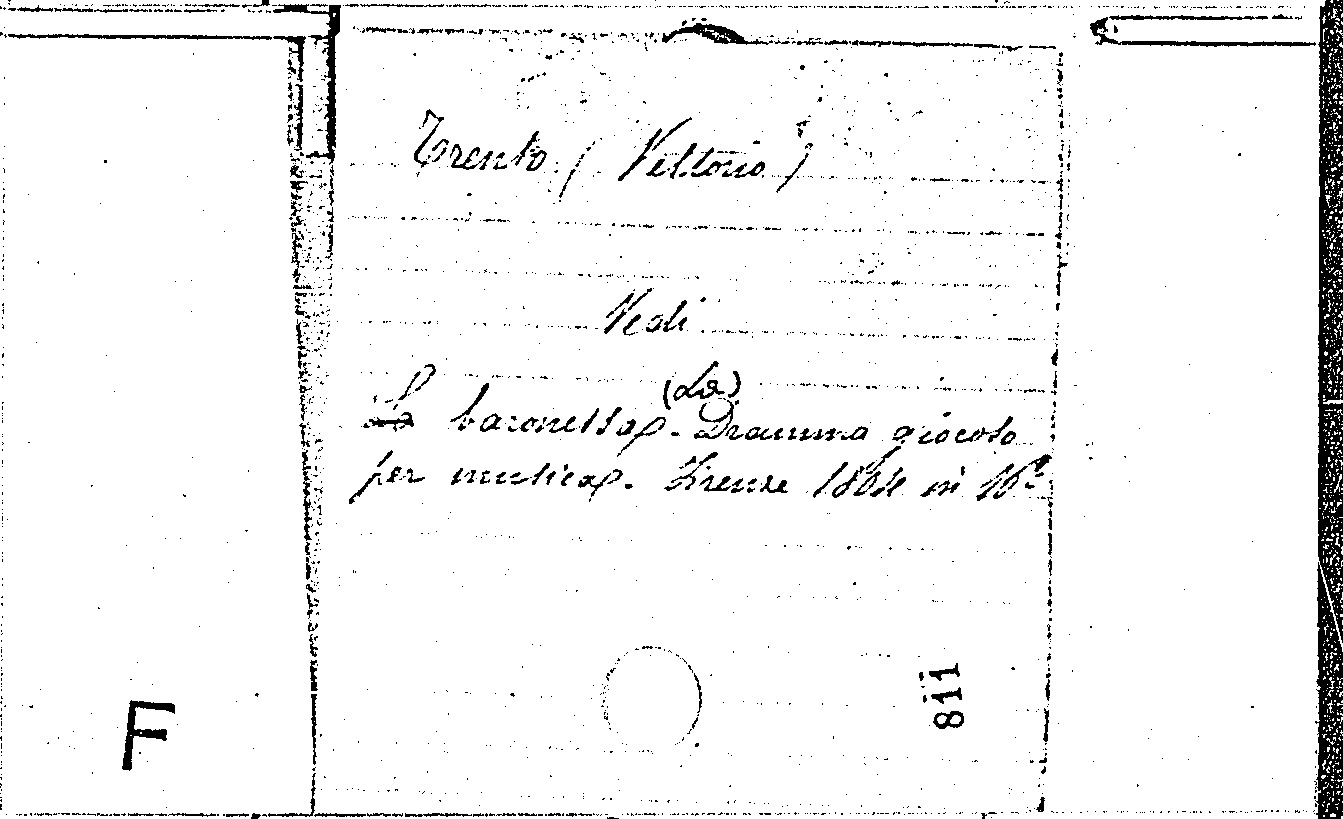 Trento (Vittorio)
Vedi
(La)
La baronessa. Dramma giocoso
per musica. Firenze in 16º
811
F